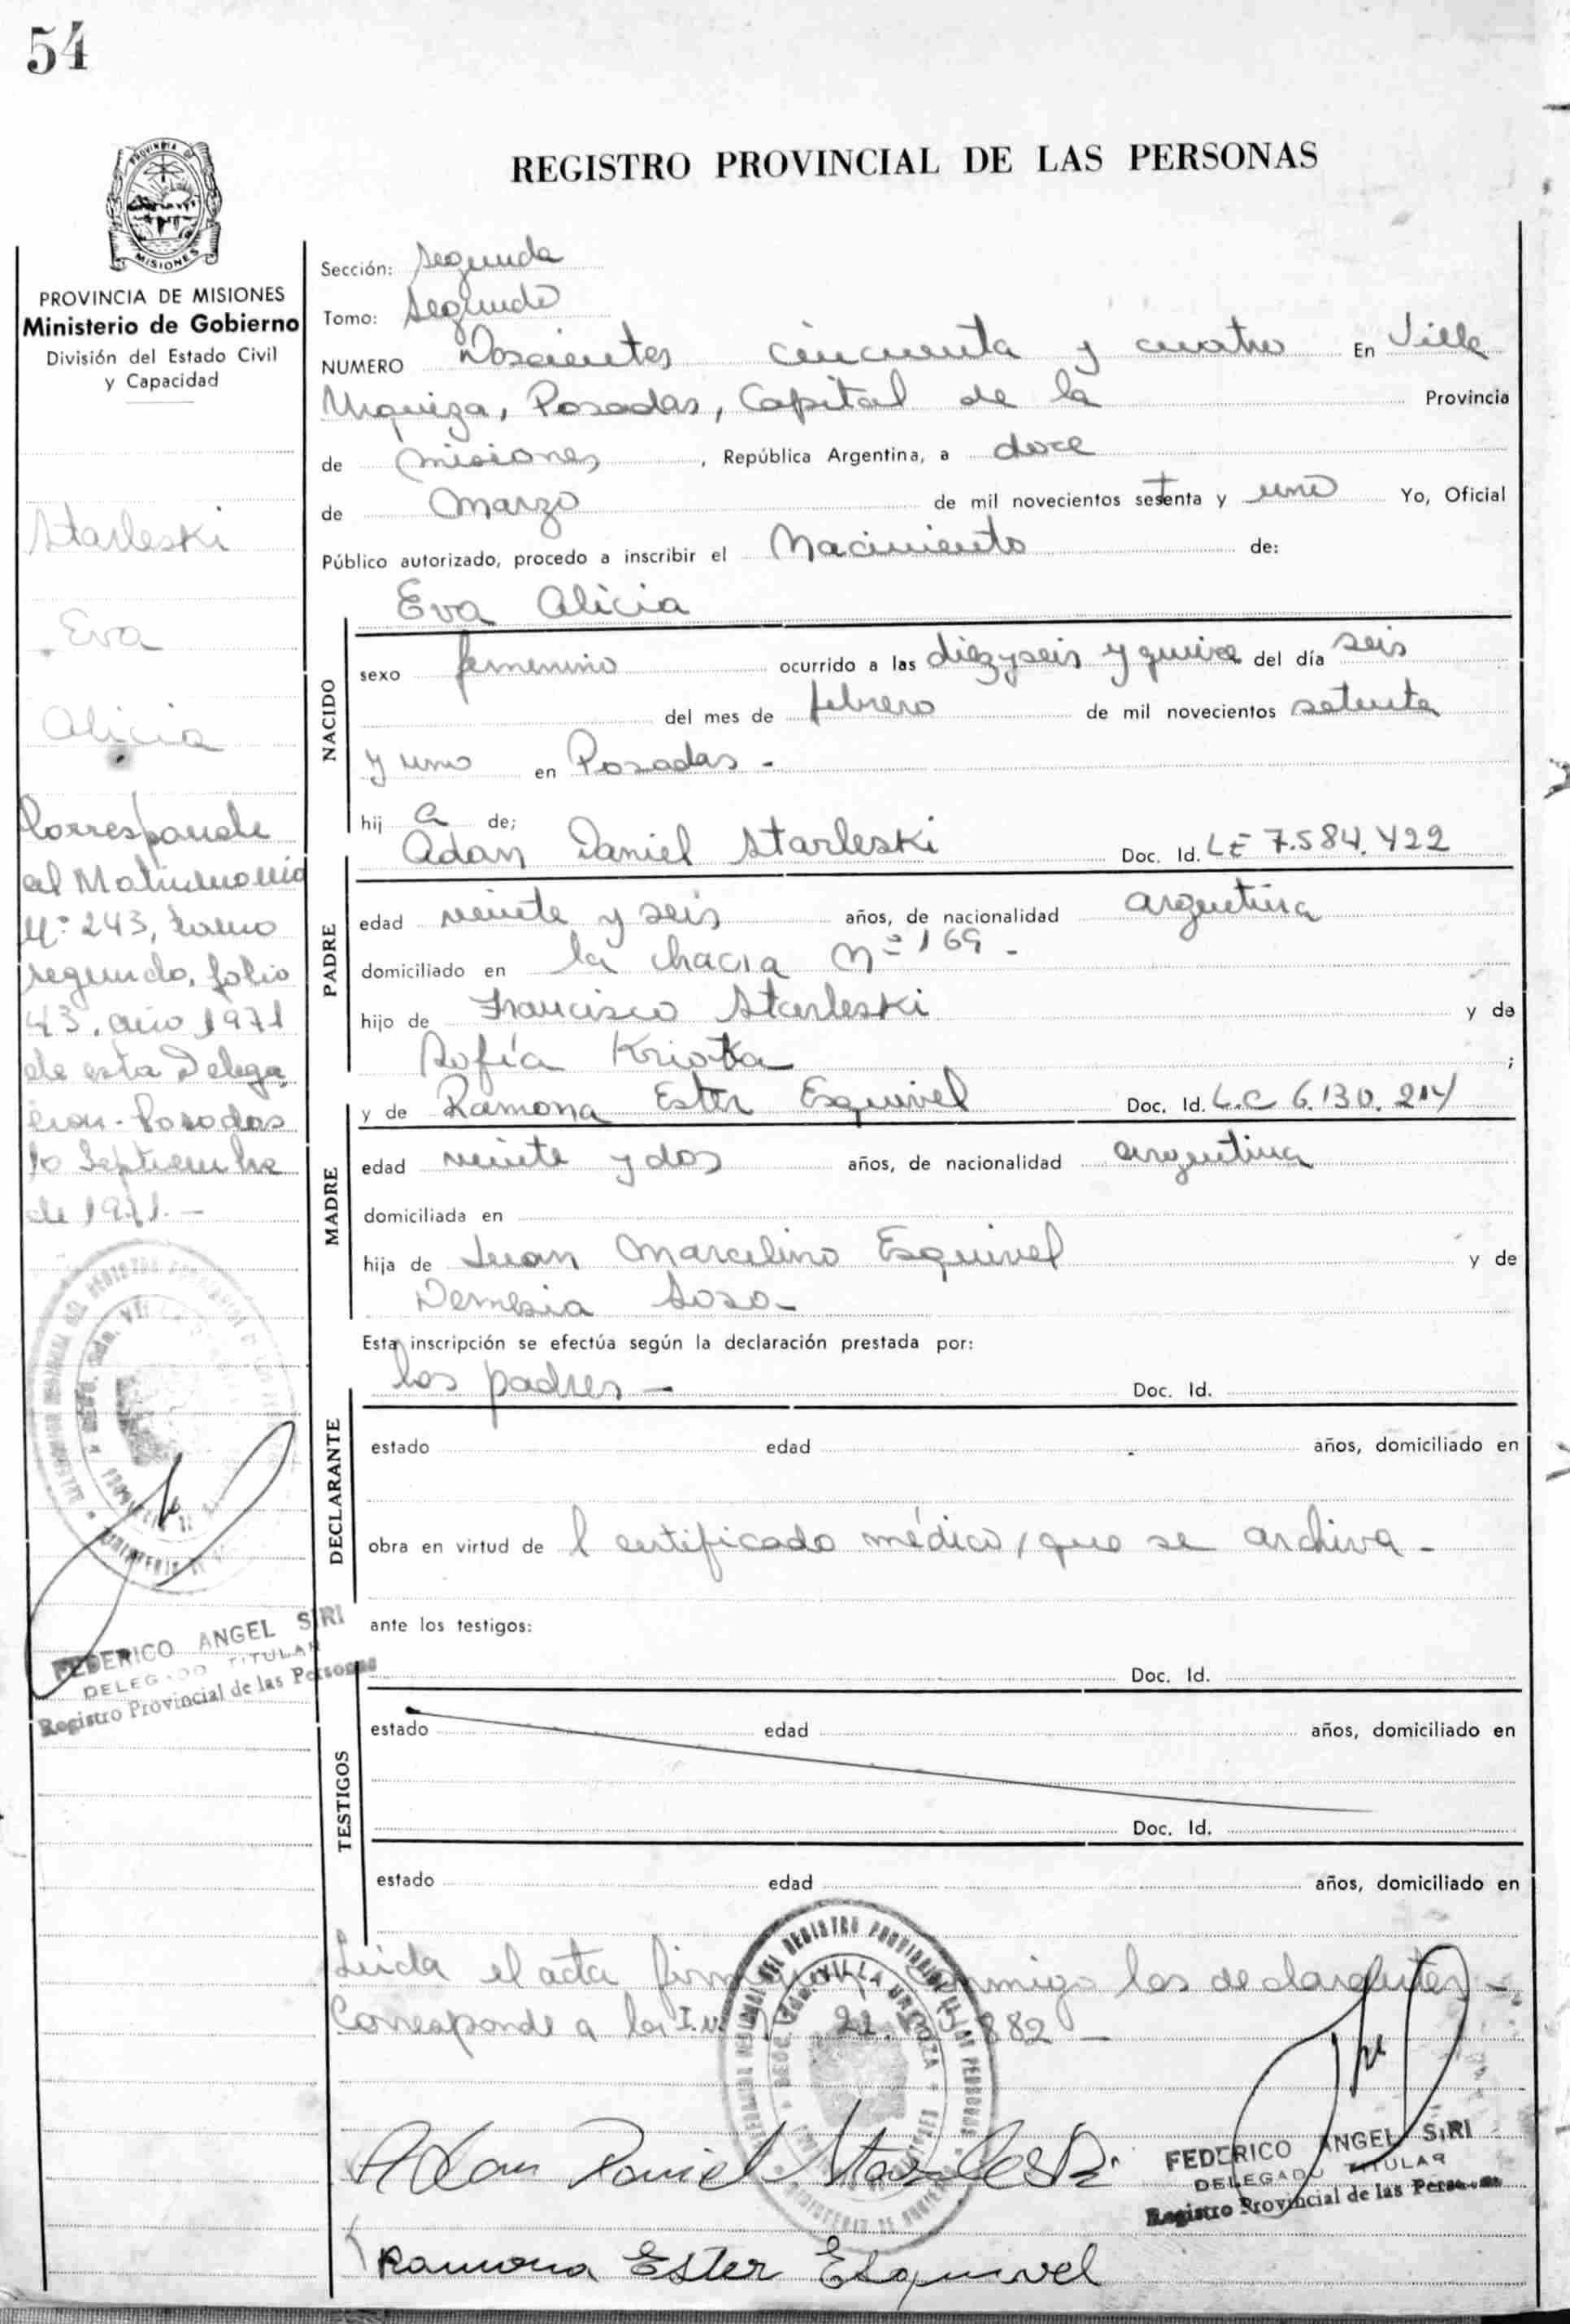 54
REGISTRO PROVINCIAL DE LAS PERSONAS
PROVINCIA DE MISIONES
PROVINCIA DE MISIONES
Ministerio de Gobierno
División del Estado Civil
y Capacidad
Starleski
Eva
Alicia
Corresponde
al Matrimonio
Nº 243, tomo
segundo, folio
43, año 1971
de esta Delega
cion - Posadas
10 Septiembre
de 1971.-
FEDERICO ANGEL SIRI
DELEGADO TITULAR
Registro Provincial de las Personas
Sección: Segunda
Tomo: Segundo
NUMERO Doscientos cincuenta y cuatro En Villa
Urquiza, Posadas, Capital de la Provincia
de Misiones, República Argentina, a doce
de Marzo de mil novecientos setenta y uno Yo, Oficial
Público autorizado, procedo a inscribir el Nacimiento de:
Eva Alicia
NACIDO
sexo femenino ocurrido a las diez y seis y quince del día seis
del mes de febrero de mil novecientos setenta
y uno en Posadas -
hij a de;
Adan Daniel Starleski Doc. Id. LE 7.584.422
PADRE
edad veinte y seis años, de nacionalidad argentina
domiciliado en la chacra Nº 169 -
hijo de Francisco Starleski y de
Sofía ;
y de Ramona Ester Esquivel Doc. Id. L.C 6.130.214
MADRE
edad veinte y dos años, de nacionalidad argentina
domiciliada en
hija de Juan Marcelino Esquivel y de
Demesia Soso -
Esta inscripción se efectúa según la declaración prestada por:
los padres - Doc. Id.
DECLARANTE
estado edad años, domiciliado en
obra en virtud de l certificado médico, que se archiva -
ante los testigos:
Doc. Id.
TESTIGOS
estado edad años, domiciliado en
Doc. Id.
estado edad años, domiciliado en
Leida el acta firman conmigo los declarantes -
Corresponde a la 882 -
VILLA URQUIZA
Adan Daniel Starleski
FEDERICO ANGEL SIRI
DELEGADO TITULAR
Registro Provincial de las Personas
Ramona Ester Esquivel